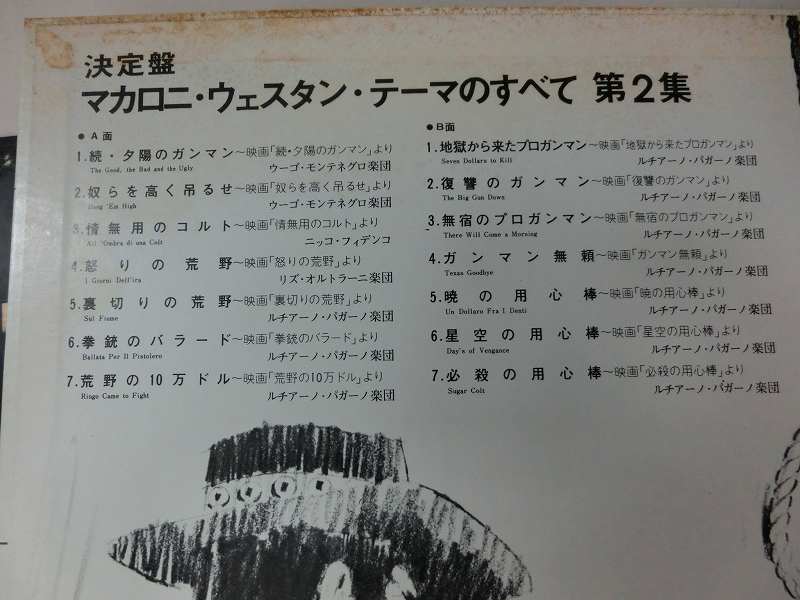 決定盤
マカロニ・ウェスタン・テーマのすべて 第2集
● A面
1.続・夕陽のガンマン～映画「続・夕陽のガンマン」より
The Good, the Bad and the Ugly ウーゴ・モンテネグロ楽団
2.奴らを高く吊るせ～映画「奴らを高く吊るせ」より
Hang 'Em High ウーゴ・モンテネグロ楽団
3.情無用のコルト～映画「情無用のコルト」より
All 'Ombra di una Colt ニッコ・フィデンコ
4.怒りの荒野～映画「怒りの荒野」より
I Giorni Dell'ira リズ・オルトラーニ楽団
5.裏切りの荒野～映画「裏切りの荒野」より
Sul Fiume ルチアーノ・パガーノ楽団
6.拳銃のバラード～映画「拳銃のバラード」より
Ballata Per Il Pistolero ルチアーノ・パガーノ楽団
7.荒野の10万ドル～映画「荒野の10万ドル」より
Ringo Came to Fight ルチアーノ・パガーノ楽団
● B面
1.地獄から来たプロガンマン～映画「地獄から来たプロガンマン」より
Seven Dollars to Kill ルチアーノ・パガーノ楽団
2.復讐のガンマン～映画「復讐のガンマン」より
The Big Gun Down ルチアーノ・パガーノ楽団
3.無宿のプロガンマン～映画「無宿のプロガンマン」より
There Will Come a Morning ルチアーノ・パガーノ楽団
4.ガンマン無頼～映画「ガンマン無頼」より
Texas Goodbye ルチアーノ・パガーノ楽団
5.暁の用心棒～映画「暁の用心棒」より
Un Dollaro Fra I Denti ルチアーノ・パガーノ楽団
6.星空の用心棒～映画「星空の用心棒」より
Day's of Vengance ルチアーノ・パガーノ楽団
7.必殺の用心棒～映画「必殺の用心棒」より
Sugar Colt ルチアーノ・パガーノ楽団